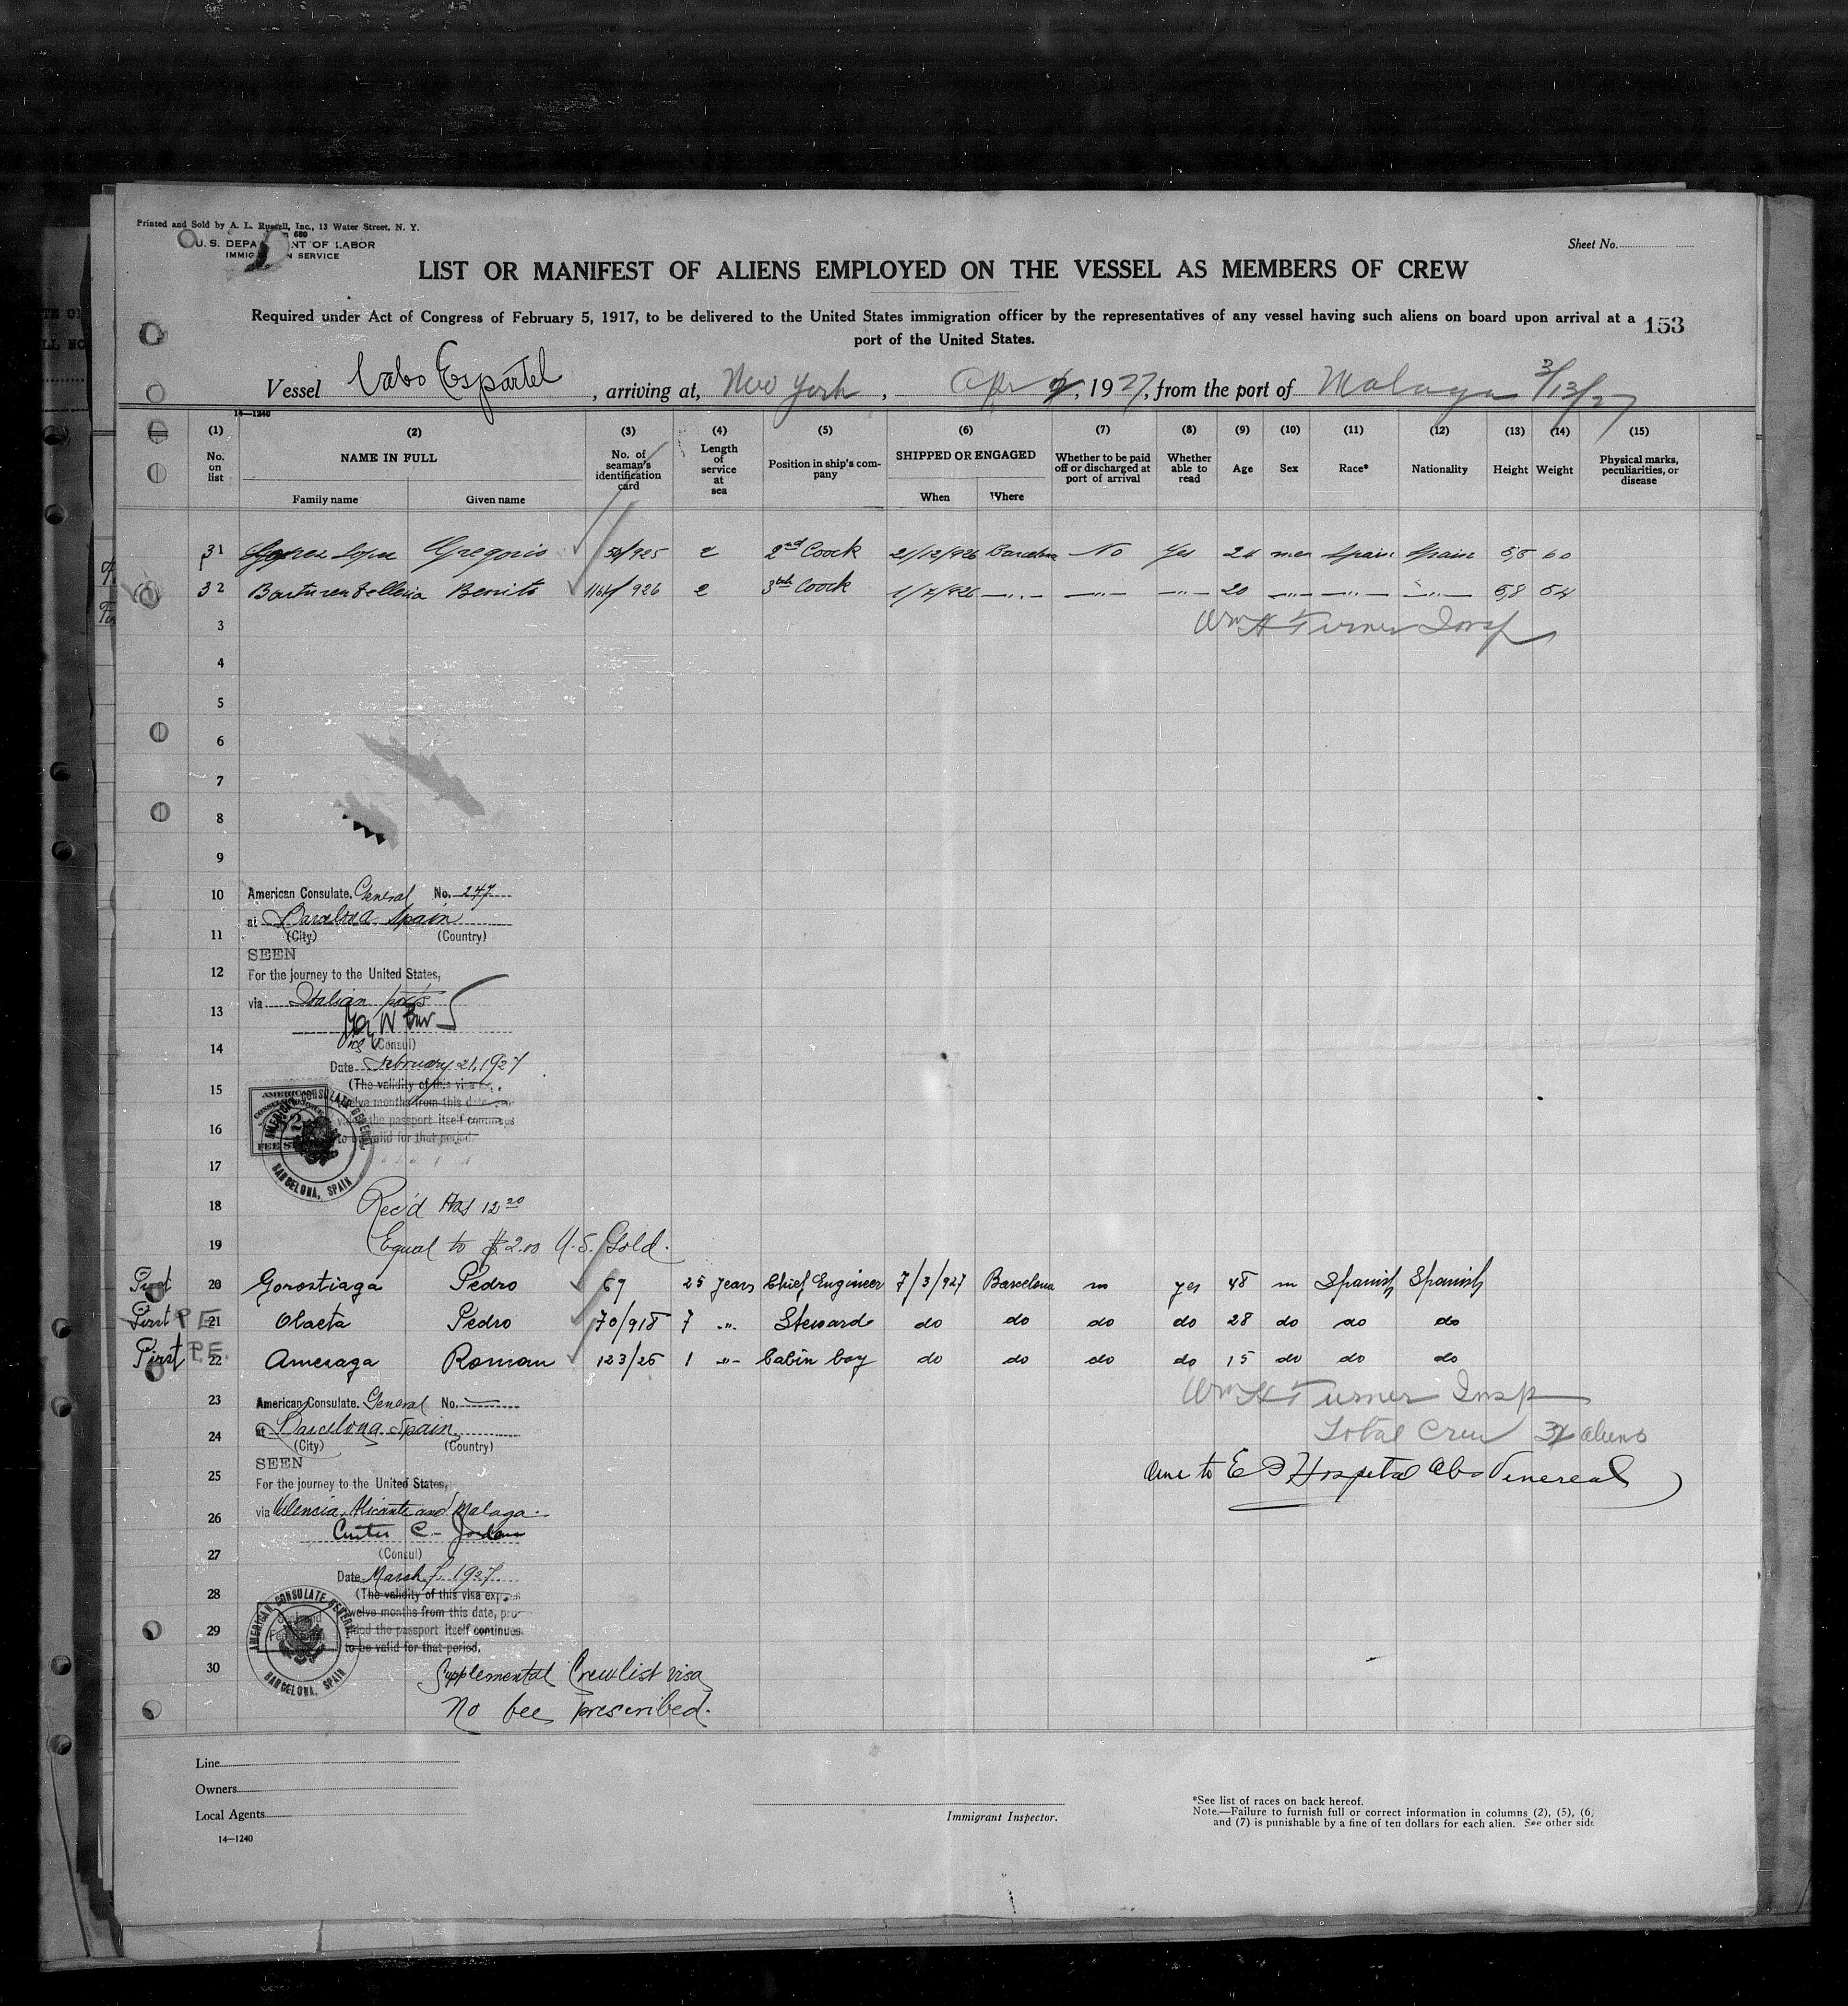 Printed and Sold by A. L. Russell, Inc., 13 Water Street, N. Y.
680
U. S. DEPARTMENT OF LABOR
IMMIGRATION SERVICE
Sheet No.
LIST OR MANIFEST OF ALIENS EMPLOYED ON THE VESSEL AS MEMBERS OF CREW
Required under Act of Congress of February 5, 1917, to be delivered to the United States immigration officer by the representatives of any vessel having such aliens on board upon arrival at a
port of the United States.
153
Vessel Cabo Espartel, arriving at, New York, Apr, 1927, from the port of Malaga 3/13/27
14—1240
(1) (2) (3) (4) (5) (6) (7) (8) (9) (10) (11) (12) (13) (14) (15)
No. on list NAME IN FULL Family name Given name No. of seaman's identification card Length of service at sea Position in ship's company SHIPPED OR ENGAGED When Where Whether to be paid off or discharged at port of arrival Whether able to read Age Sex Race* Nationality Height Weight Physical marks, peculiarities, or disease
31 Lopez Gregorio 50/925 2 2nd Coock 21/12/926 Barcelona No Yes 24 men Spain Spain 5,5 60
32 Benito 926 2 3th Coock 1/7/926 —"— —"— —"— 20 —"— —"— —"— 5,8 54
3 Wm H Turner Insp
4
5
6
7
8
9
10 American Consulate. General No. 247
at Barcelona Spain
11 (City) (Country)
SEEN
12 For the journey to the United States,
via Italian ports
13
14 Vice (Consul)
Date February 21, 1927
15 (The validity of this visa
twelve months from this date
16 the passport itself continues
to be valid for that period.
AMERICAN CONSULATE GENERAL
BARCELONA, SPAIN
17
18 Rec'd Ptas 12 20
19 Equal to $2.00 U.S. Gold.
First 20 Gorostiaga Pedro 67 25 years Chief Engineer 7/3/927 Barcelona no yes 48 m Spanish Spanish
First P.E. 21 Olaeta Pedro 70/918 7 " Steward do do do do 28 do do do
First P.E. 22 Amesaga Roman 123/25 1 " Cabin boy do do do do 15 do do do
Wm H Turner Insp
23 American Consulate. General No.
Total Crew aliens
at Barcelona Spain
24 (City) (Country)
SEEN
One to Hospital Venereal
25 For the journey to the United States,
26 via Valencia, Alicante and Malaga
Curtis C. Jordan
27 (Consul)
Date March 7, 1927.
28 (The validity of this visa expires
twelve months from this date, pro-
29 vided the passport itself continues
to be valid for that period.
AMERICAN CONSULATE GENERAL
BARCELONA, SPAIN
30 Supplemental Crewlist visa
No fee prescribed.
Line
Owners
Local Agents
14—1240
Immigrant Inspector.
*See list of races on back hereof.
Note.—Failure to furnish full or correct information in columns (2), (5), (6)
and (7) is punishable by a fine of ten dollars for each alien. See other side